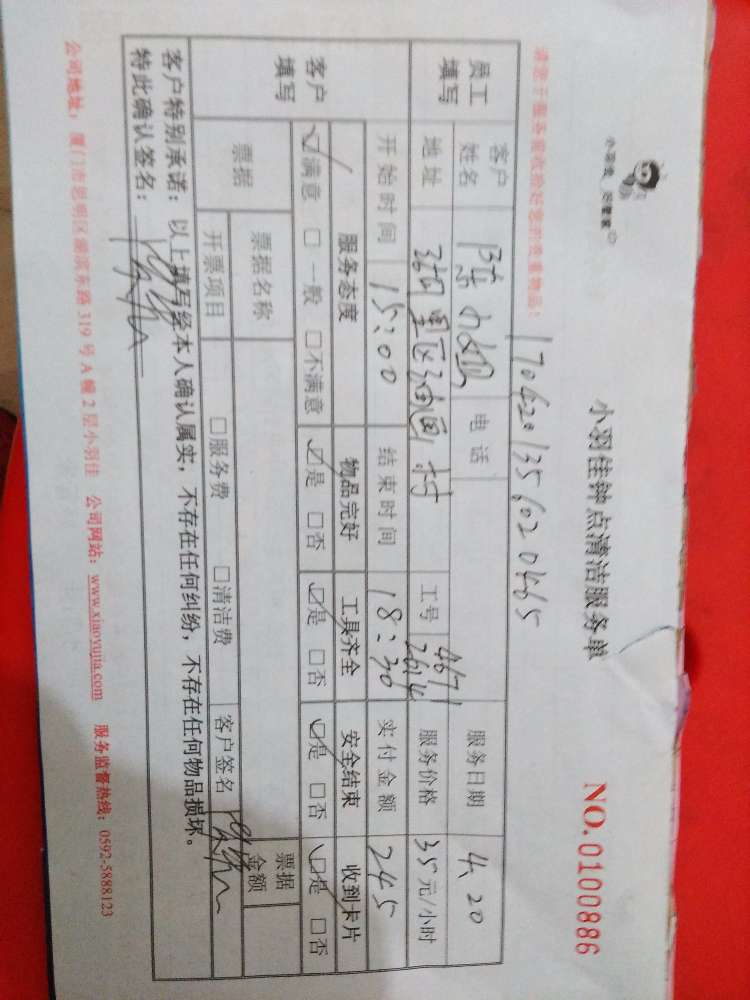 小羽佳 好管家
小羽佳钟点清洁服务单
NO.0100886
1704201356020465
请您于服务前收拾好您的贵重物品:
员工填写 客户姓名 陈小姐 电话 工号 4671 2614 服务日期 4.20
地址 区油画村 服务价格 35元/小时
客户填写 开始时间 15:00 结束时间 18:30 实付金额 245
服务态度 物品完好 工具齐全 安全结束 收到卡片
☑满意 □一般 □不满意 ☑是 □否 ☑是 □否 ☑是 □否 ☑是 □否
票据 票据名称 票据金额
开票项目 □服务费 □清洁费 客户签名
客户特别承诺:以上填写经本人确认属实,不存在任何纠纷,不存在任何物品损坏。
特此确认签名:
公司地址:厦门市思明区湖滨东路319号A幢2层小羽佳 公司网站:www.xiaoyujia.com 服务监督热线:0592-5888123